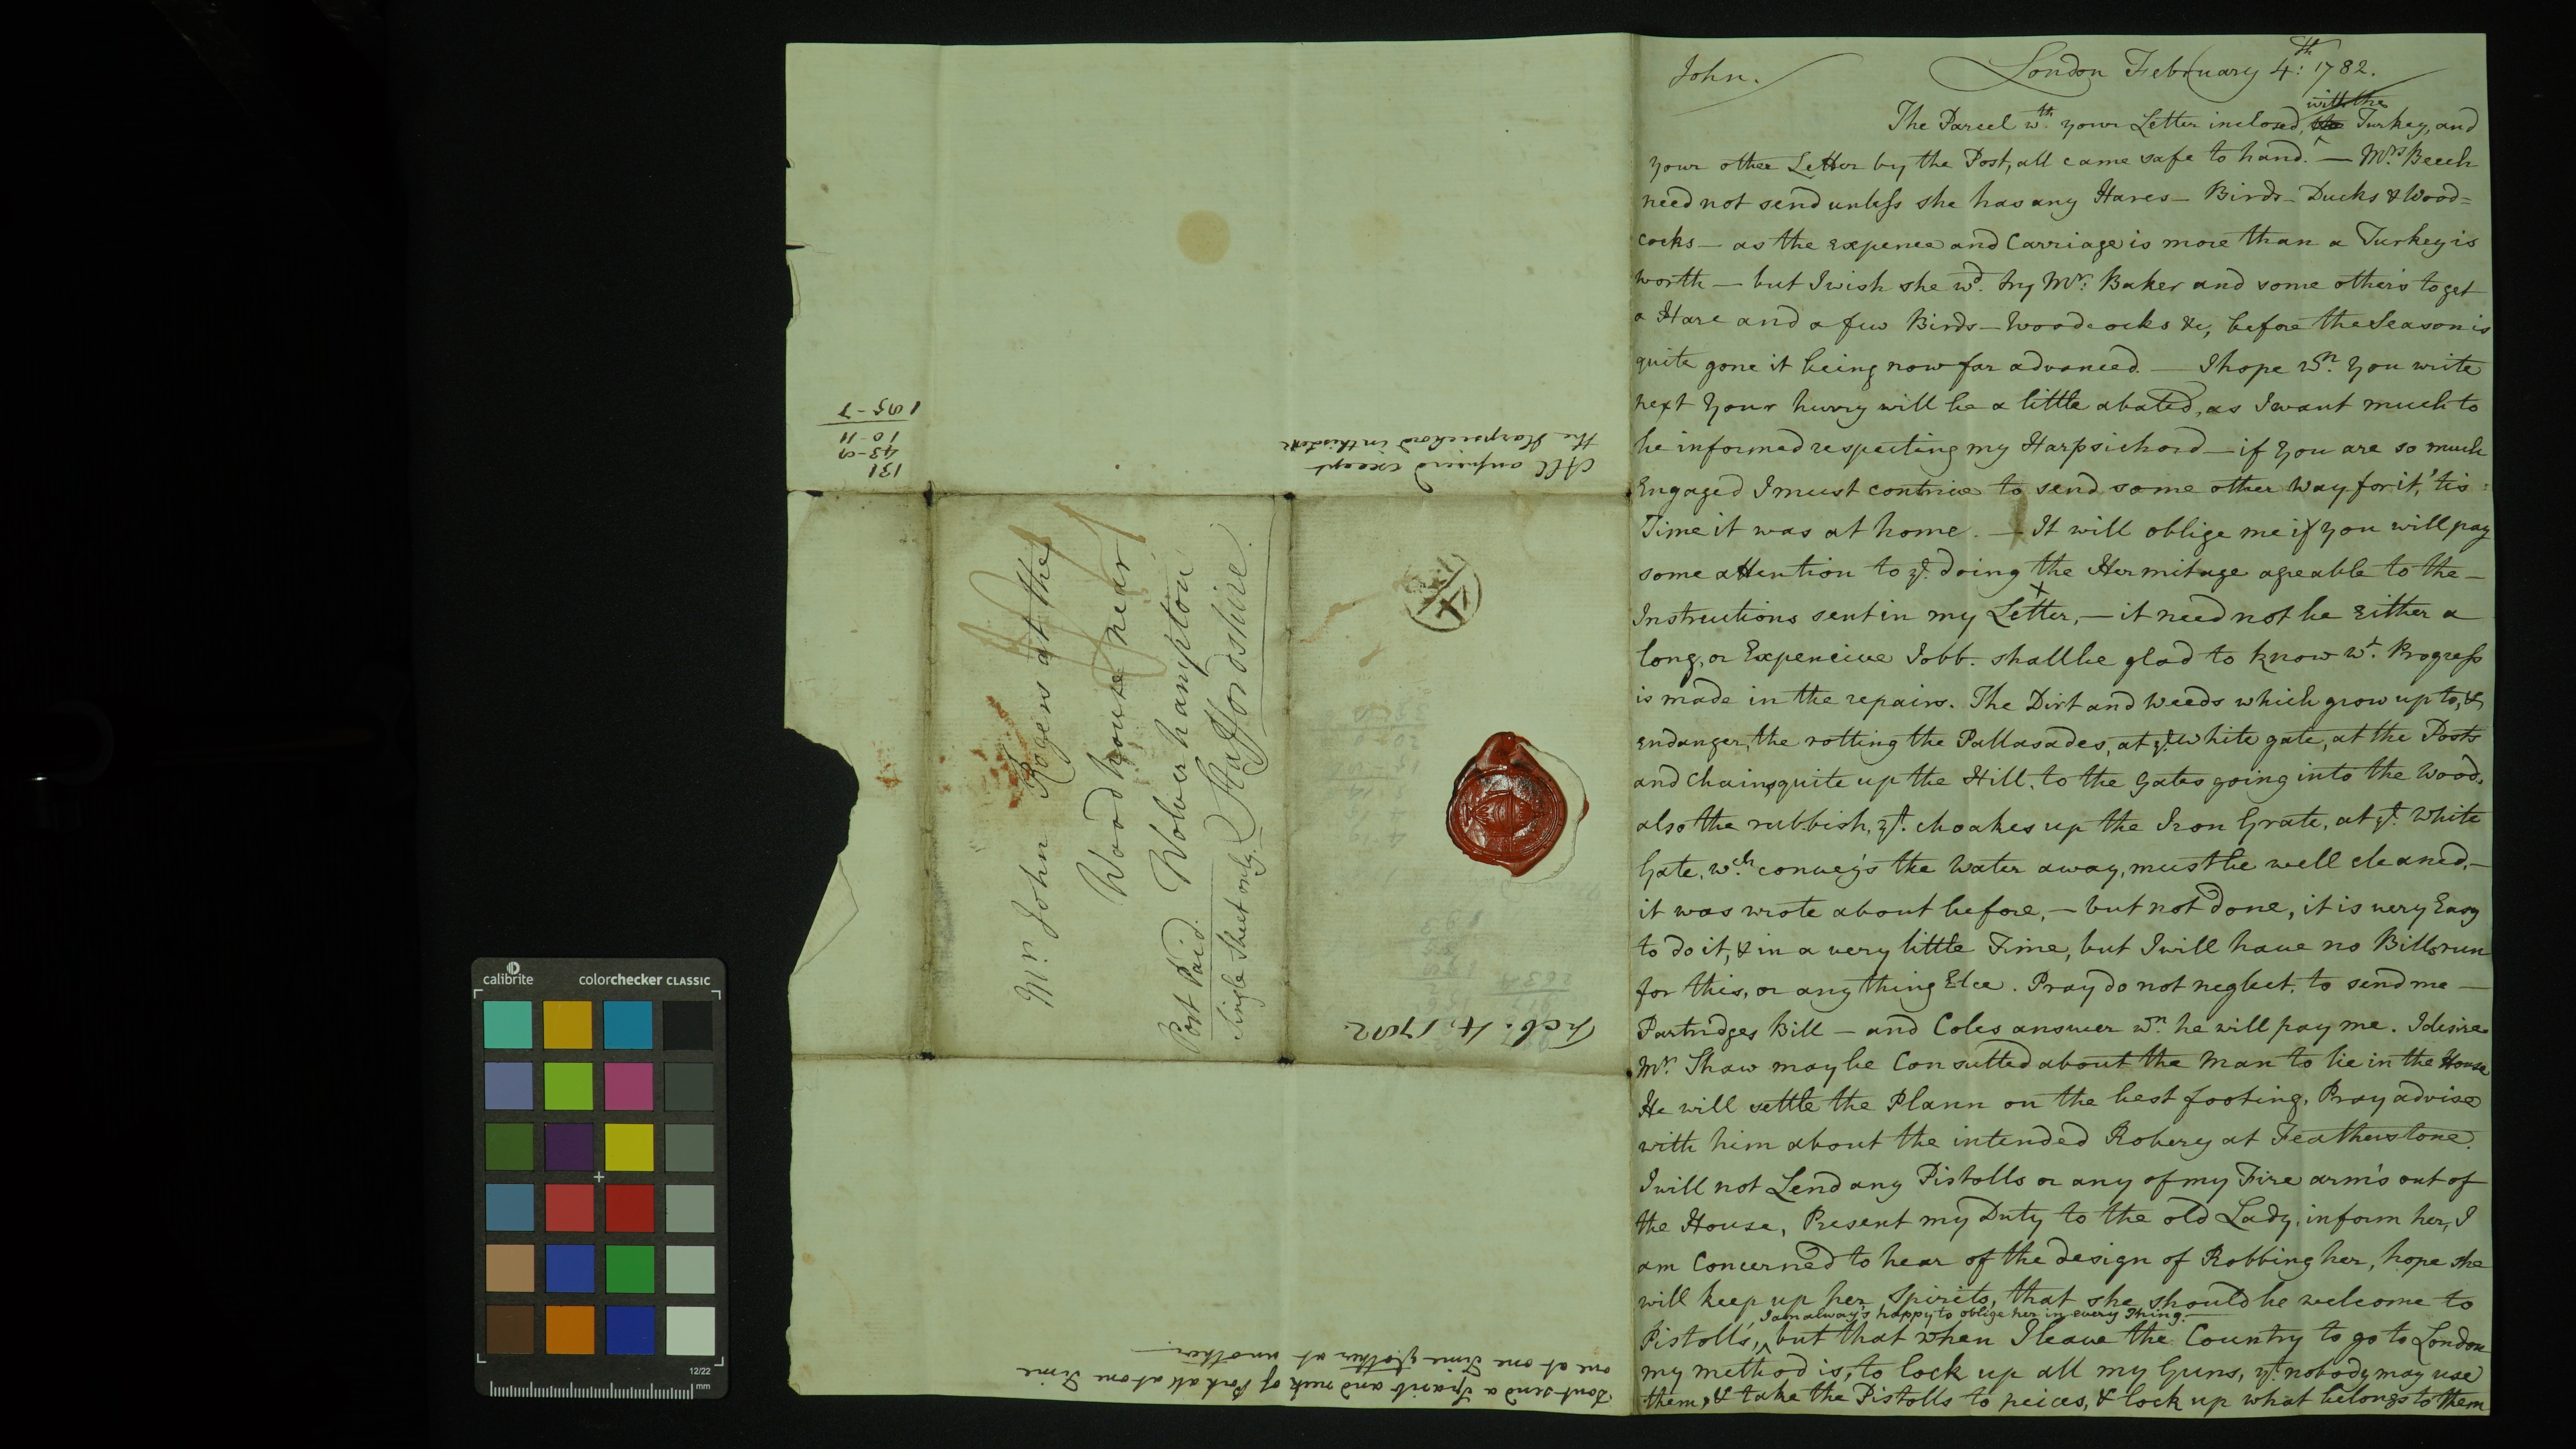 John.
London February 4:th 1782.
with the
The Parcel wth. your Letter inclosed, Turkey, and
your other Letter by the Post, all came safe to hand. — Mrs. Beech
need not send unless she has any Hares — Birds — Ducks & Wood=
cocks — as the expence and Carriage is more than a Turkey is
worth — but I wish she wd. try Mr: Baker and some others to get
a Hare and a few Birds — Woodcocks &c, before the Season is
quite gone it being now far advanced. — I hope wn. You write
next Your hurry will be a little abated, as I want much to
be informed respecting my Harpsichord — if You are so much
Engaged I must contrive to send some other Way for it, 'tis
Time it was at home. — It will oblige me if you will pay
some attention to ye. doing the Hermitage agreable to the —
Instructions sent in my Letter, — it need not be Either a
long, or Expencive Jobb. shall be glad to know wt. Progress
is made in the repairs. The Dirt and Weeds which grow up to, &
endanger, the rotting the Pallasades, at ye. White gate, at the Posts
and Chains, quite up the Hill, to the Gates going into the Wood,
also the rubbish, yt. choakes up the Iron Grate, at ye. White
Gate, wch. convey's the Water away, must be well cleaned, —
it was wrote about before, — but not done, it is very Easy
to do it, & in a very little Time, but I will have no Bills run
for this, or any thing Elce. Pray do not neglect, to send me —
Partridges Bill — and Coles answer wn. he will pay me. I desire
Mr. Shaw may be Consulted about the Man to lie in the House
He will settle the Plann on the best footing, Pray advise
with him about the intended Robery at Featherstone.
I will not Lend any Pistolls or any of my Fire arm's out of
the House, Present my Duty to the old Lady, inform her, I
am Concerned to hear of the design of Robbing her, hope she
will keep up her Spirits, that she should be welcome to
I am alway's happy to oblige her in every Thing. —
Pistoll's, but that when I leave the Country to go to London
my method is, to lock up all my Guns, yt. nobody may use
them, & take the Pistolls to peices, & lock up what belongs to them
Mr. John Rogers at the
Woodhouse near
Wolverhampton
Staffordshire.
Post Paid.
Single Sheet only.
Feb. 4. 1782.
All answered except
the Harpsichord in this date
131
43-9
10-11
Dont send a Sparib and neck of Pork all at one Time
one at one Time & other at another. —